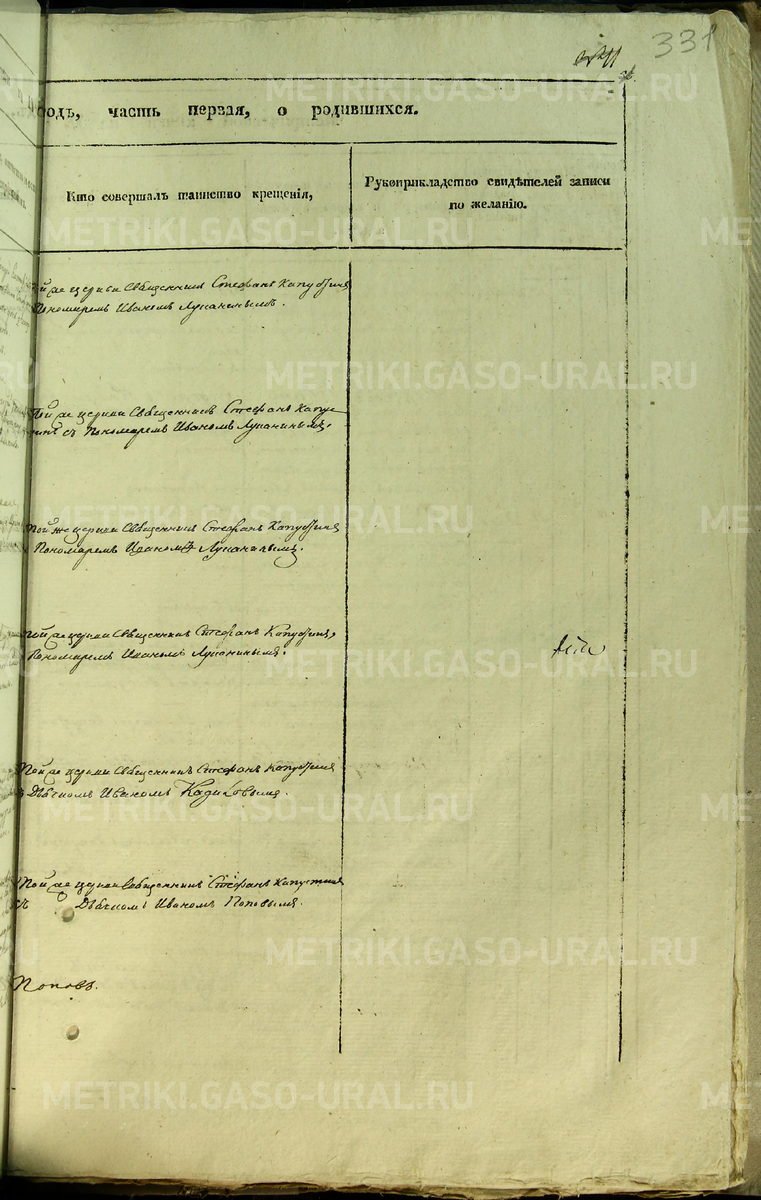 331
METRIKI.GASO-URAL.RU
одъ, часть первая, о родившихся.
Кто совершалъ таинство крещенія,
Рукоприкладство свидѣтелей записи
по желанію.
Той же церкви Священникъ Стефанъ Капустинъ
Пономаремъ Иваномъ Лупанинымъ.
Той же церкви Священникъ Стефанъ Капус-
тинъ съ Пономаремъ Иваномъ Лупанинымъ.
Той же церкви Священникъ Стефанъ Капустинъ
Пономаремъ Иваномъ Лупанинымъ.
Той же церкви Священникъ Стефанъ Капустинъ
Пономаремъ Иваномъ Лупанинымъ.
Той же церкви Священникъ Стефанъ Капустинъ
Дьячкомъ Иваномъ
Той же церкви Священникъ Стефанъ Капустинъ
съ Дьячкомъ Иваномъ Поповымъ.
Поповъ.